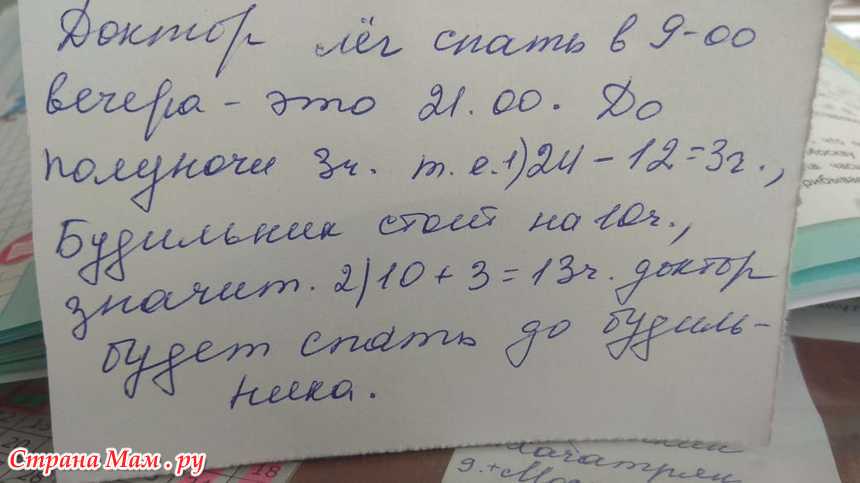 Доктор лёг спать в 9-00
вечера - это 21.00. До
полуночи 3ч. т.е. 1) 24 - 12 = 3ч.,
Будильник стоит на 10ч.,
значит. 2) 10 + 3 = 13ч. доктор
будет спать до будиль-
ника.
9. + Мос
Страна Мам.ру
18